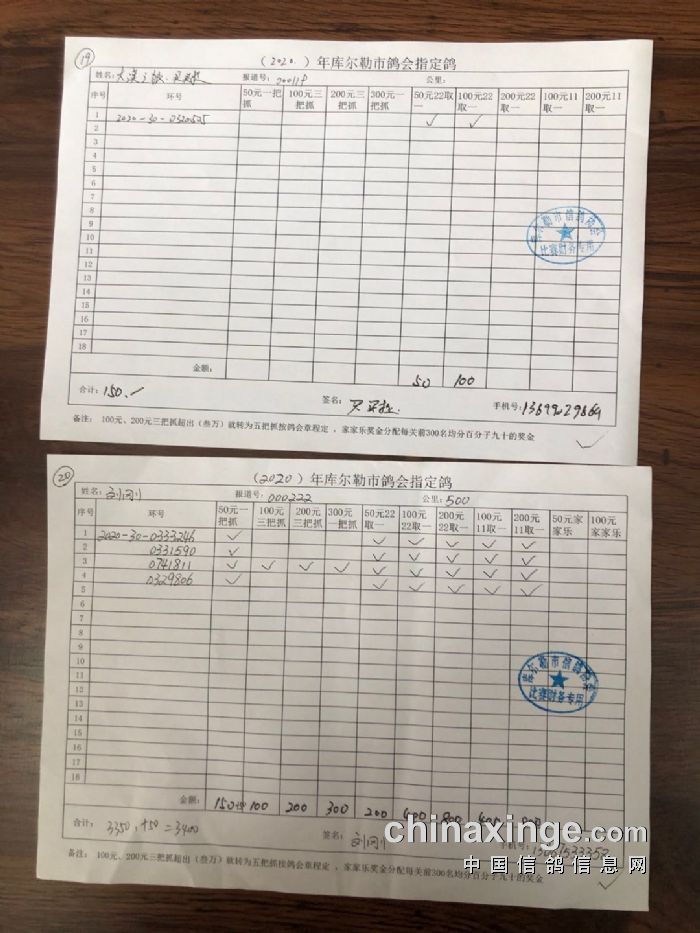 19
（2020）年库尔勒市鸽会指定鸽
姓名: 报道号: 公里:
序号 环号 50元一把抓 100元三把抓 200元三把抓 300元一把抓 50元22取一 100元22取一 200元22取一 100元11取一 200元11取一
1 2020-30-0320525 ✓ ✓
2
3
4
5
6
7
8
9
10
11
12
13
14
15
16
17
18
库尔勒市信鸽协会
比赛财务专用
金额: 50 100
合计: 150.
签名: 手机号:
备注: 100元、200元三把抓超出（叁万）就转为五把抓按鸽会章程定，家家乐奖金分配每关前300名均分百分子九十的奖金
20
（2020）年库尔勒市鸽会指定鸽
姓名: 报道号: 000222 公里: 500
序号 环号 50元一把抓 100元三把抓 200元三把抓 300元一把抓 50元22取一 100元22取一 200元22取一 100元11取一 200元11取一 50元家家乐 100元家家乐
1 2020-30-0333246 ✓ ✓ ✓ ✓ ✓ ✓
2 0331590 ✓ ✓ ✓ ✓ ✓ ✓
3 0741811 ✓ ✓ ✓ ✓ ✓ ✓ ✓ ✓ ✓
4 0329806 ✓ ✓ ✓ ✓ ✓ ✓
5
6
7
8
9
10
11
12
13
14
15
16
17
18
库尔勒市信鸽协会
比赛财务专用
金额: 150+50 100 200 300 200 400 800 400 800
合计: 3350.+50=3400
签名: 手机号:
chinaxinge.com
备注: 100元、200元三把抓超出（叁万）就转为五把抓按鸽会章程定，家家乐奖金分配每关前300名均分百分子九十的奖金
中国信鸽信息网